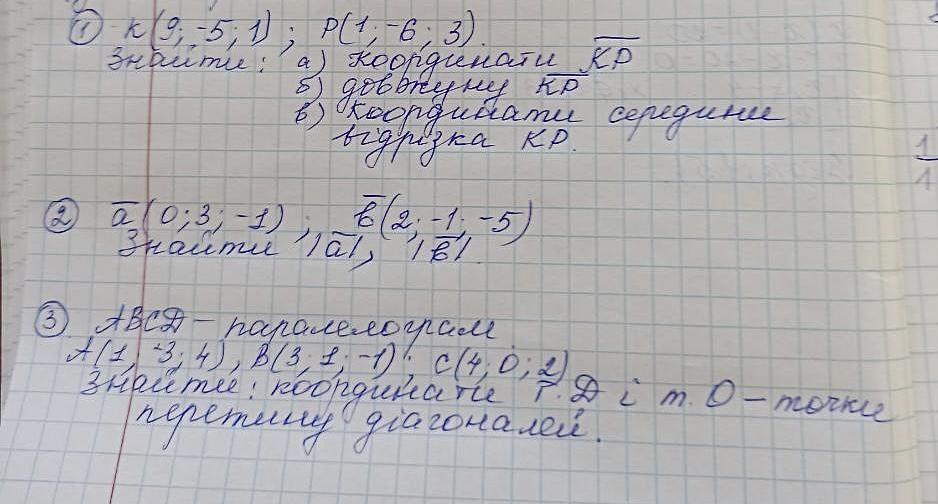 ① K(9; -5; 1) ; P(1; -6; 3).
Знайти: а) координати K̅P̅
б) довжину K̅P̅
в) координати середини
відрізка KP.
② a̅(0; 3; -1) ; b̅(2; -1; -5)
Знайти |a̅|, |b̅|.
③ ABCD – паралелограм
A(1; -3; 4), B(3; 1; -1); C(4; 0; 2)
Знайти: координати т. D і т. O – точки
перетину діагоналей.
1
1